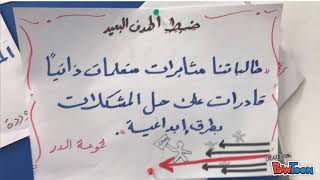 ضبط الهدف البعيد
طالباتنا مثابرات متعلمات ذاتياً
قادرات على حل المشكلات
بطرق إبداعية
مجموعة الدر
PowToon